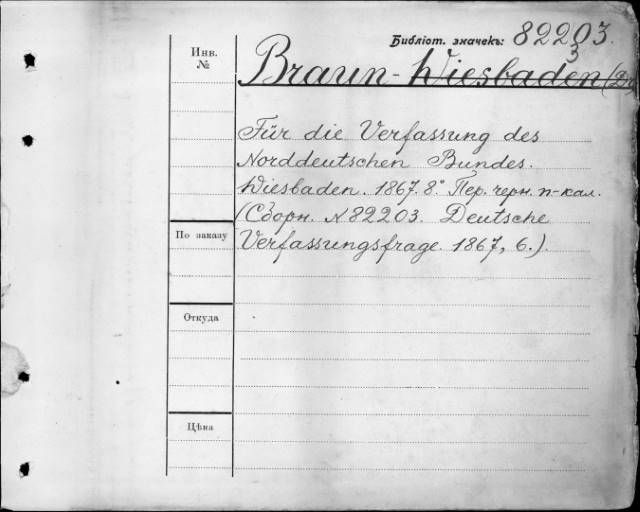 Библіот. значекъ: 82203.
3
Инв.
№
Braun-Wiesbaden
Für die Verfassung des
Norddeutschen Bundes.
Wiesbaden. 1867. 8° Пер. черн. п-кал.
(Сборн. №82203. Deutsche
По заказу
Verfassungsfrage. 1867, 6.).
Откуда
Цѣна